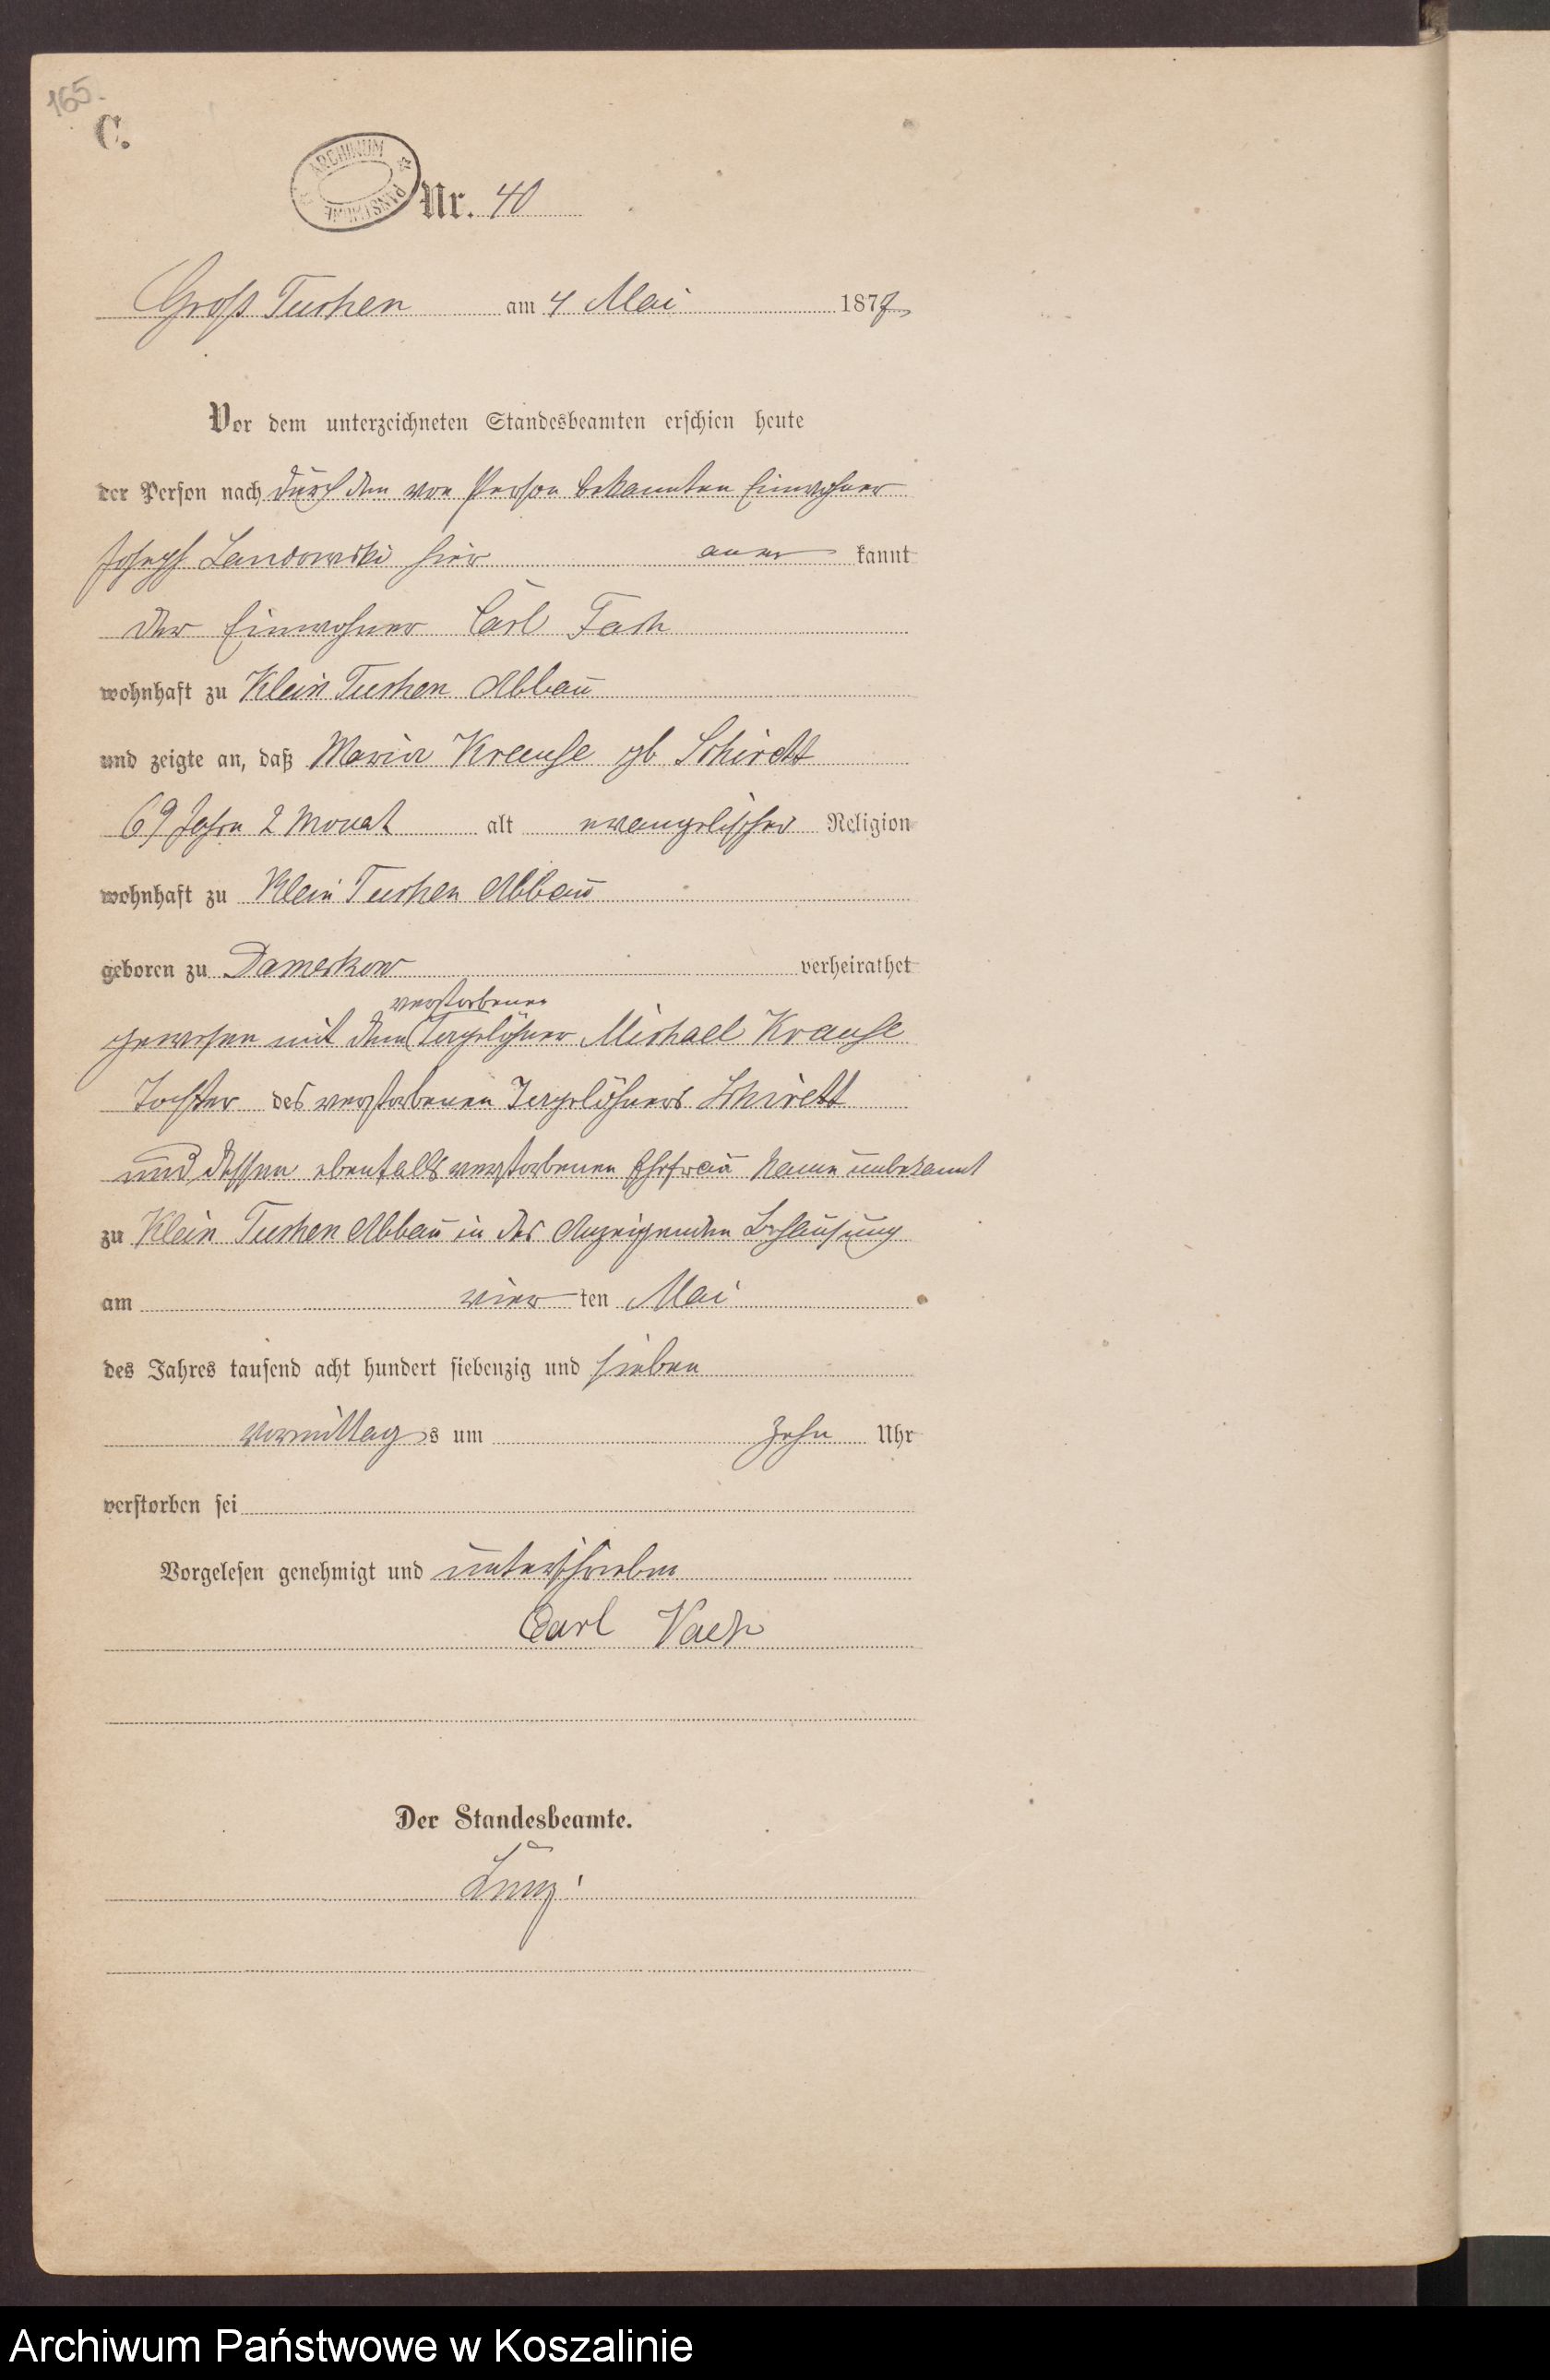 165.
C.
ARCHIWUM PAŃSTWOWE
Nr. 40
Groß Tuchen am 4 Mai 1877
Vor dem unterzeichneten Standesbeamten erschien heute
der Person nach durch den von Person bekannten Einwohner
Joseph Landowski hier aner kannt
der Einwohner Carl Fach
wohnhaft zu Klein Tuchen Abbau
und zeigte an, daß Maria Krause gb Schirett
69 Jahre 2 Monat alt evangelischer Religion
wohnhaft zu Klein Tuchen Abbau
geboren zu Damerkow verheirathet
verstorbenen
gewesen mit dem Tagelöhner Michael Krause
Tochter des verstorbenen Tagelöhners Schirett
und dessen ebenfalls verstorbenen Ehefrau Name unbekannt
zu Klein Tuchen Abbau in des Anzeigenden Behausung
am vier ten Mai
des Jahres tausend acht hundert siebenzig und sieben
vormittag s um zehn Uhr
verstorben sei
Vorgelesen genehmigt und unterschrieben
Carl Vach
Der Standesbeamte.
Archiwum Państwowe w Koszalinie